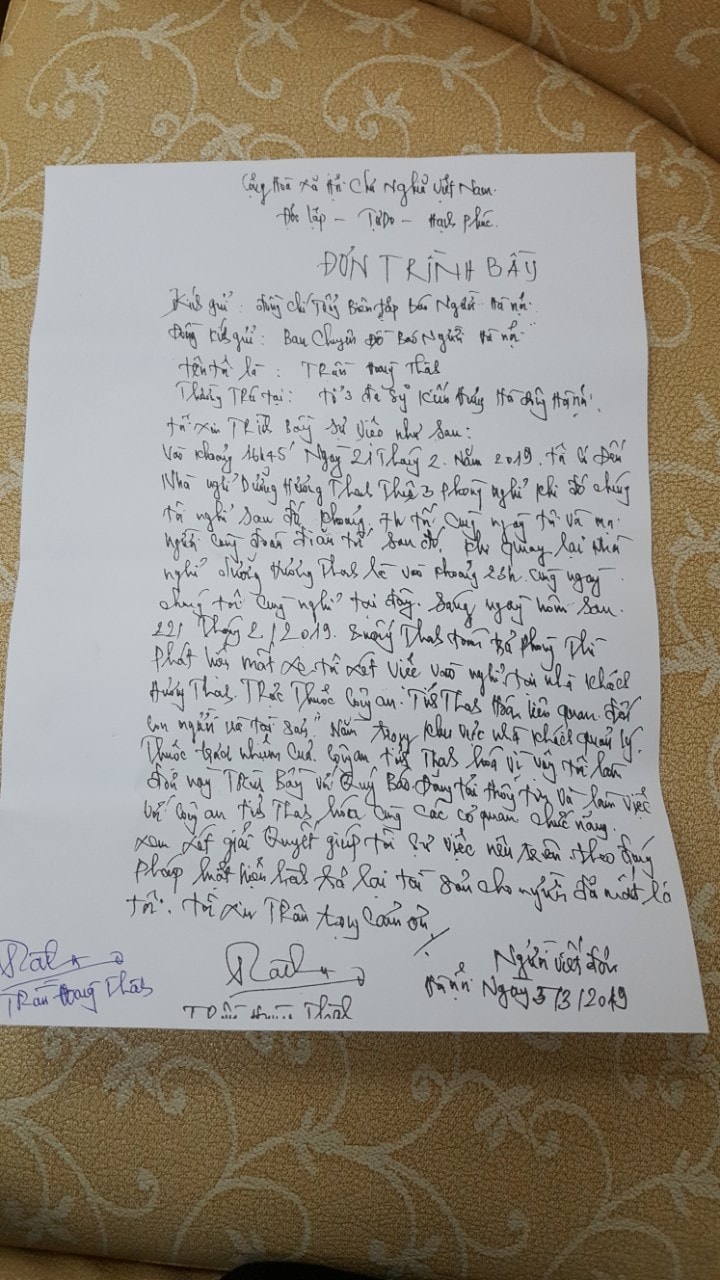 Cộng Hoà Xã Hội Chủ Nghĩa Việt Nam.
Độc lập - Tự Do - Hạnh Phúc.
ĐƠN TRÌNH BẦY
Kính gửi: đồng chí Tổng Biên tập báo Người Hà nội.
Đồng kính gửi: Ban Chuyên Đề Báo Người Hà nội
tên tôi là: Trần Hoàng Thành
Thường Trú tại: tổ 3 Đa Sỹ Kiến Hưng Hà Đông Hà nội.
tôi xin Trình Bầy sự việc như sau:
Vào khoảng 16h45' Ngày 21 Tháng 2. Năm 2019. tôi có đến
Nhà nghỉ Dưỡng Hương Thơm Thuê 3 phòng nghỉ khi đó chúng
tôi nghỉ sau đó khoảng, 7h tối, cùng ngày tôi và mọi
người cùng đoàn đi ăn tối sau đó, khi quay lại nhà
nghỉ dưỡng Hương Thơm là vào khoảng 23h. cùng ngày.
chúng tôi cùng nghỉ tại đây. Sáng ngày hôm sau.
22/ Tháng 2/2019. xuống trả phòng Thì
Phát hiện mất xe. tôi xét việc vào nghỉ tại nhà khách
Trực Thuộc Công an. Tỉnh Thanh Hoá. liên quan đến
con người và tài sản." Nằm trong khu vực nhà khách quản lý.
Thuộc trách nhiệm của. Công an tỉnh Thanh hoá vì vậy tôi làm
đơn này Trình Bầy với Quý Báo Đăng tải thông tin và làm việc
với công an tỉnh Thanh hóa cùng các cơ quan chức năng.
xem xét giải quyết giúp tôi sự việc nêu trên theo đúng
Pháp luật hiện hành trả lại tài sản cho người đã mất là
tôi. tôi xin Trân trọng cảm ơn!
Người viết đơn
Hà nội Ngày 5/3/2019
Trần Hoàng Thành
Thành